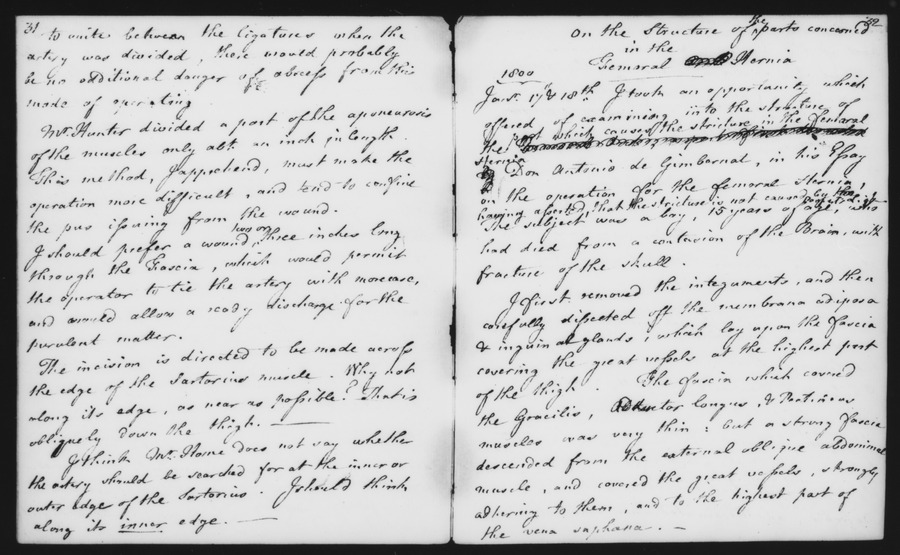 31
to unite between the ligatures when the
artery was divided, there would probably
be no additional danger of abscess from this
mode of operating
Mr. Hunter divided a part of the aponeurosis
of the muscles only abt. an inch in length.
This method, I apprehend, must make the
operation more difficult, and tend to confine
the pus issuing from the wound.
I should prefer a wound two or three inches long
through the Fascia, which would permit
the operator to tie the artery with more ease,
and would allow a ready discharge for the
purulent matter.
The incision is directed to be made across
the edge of the Sartorius muscle. Why not
along its edge, as near as possible? That is
obliquely down the thigh. —
I think Mr. Home does not say whether
the artery should be searched for at the inner or
outer edge of the Sartorius. I should think
along its inner edge. —
32
On the Structure of the parts concerned
in the
Femoral Hernia
1800
Jany. 17 & 18th I took an opportunity which
offered of examining into the structure of
the part which causes the stricture in the femoral
Hernia
Don Antonio de Gimbernat, in his Essay
on the operation for the femoral Hernia,
having asserted that the stricture is not caused by the
The subject was a boy, 15 years of age, who
had died from a contusion of the Brain, with
fracture of the skull.
I first removed the integuments, and then
carefully dissected off the membrana adiposa
& inguinal glands, which lay upon the fascia
covering the great vessels at the highest part
of the thigh. The fascia which covered
the Gracilis, Adductor longus, & Pectineus
muscles was very thin: but a strong fascia
descended from the external oblique abdominal
muscle, and covered the great vessels, strongly
adhering to them, and to the highest part of
the vena saphana. —